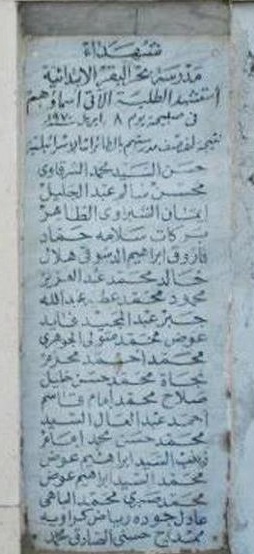 شهداء
مدرسة بحر البقر الابتدائية
استشهد الطلبة الآتى أسماؤهم
فى صبيحة يوم ٨ ابريل ١٩٧٠
نتيجة لقصف مدرستهم بالطائرات الاسرائيلية
حسن السيد محمد الشرقاوى
محسن سالم عبد الجليل
ايمان الشبراوى الطاهر
بركات سلامه حماد
فاروق ابراهيم الدسوقى هلال
خالد محمد عبد العزيز
محمود محمد عطيه عبد الله
جبر عبد المجيد فايد
عوض محمد متولى الجوهرى
محمد احمد محرم
نجاة محمد حسن خليل
صلاح محمد امام قاسم
احمد عبد العال السيد
محمد حسن محمد امام
زينب السيد ابراهيم عوض
محمد السيد ابراهيم عوض
محمد صبرى محمد الباهى
عادل جوده رياض كراويه
ممدوح حسنى الصادق محمد